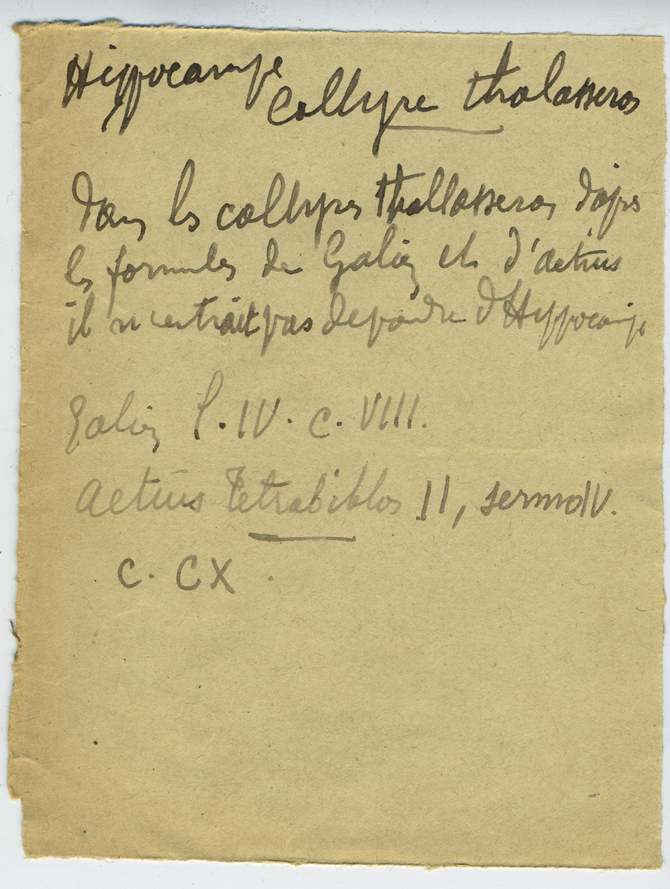 Hippocampe
Collyre thalasseros
Dans les collyres thallasseros d'après
les formules de Galien et d'Aetius
il n'entrait pas de poudre d'Hippocampe
Galien l. IV. c. VIII.
Aetius Tetrabiblos II, sermo IV.
c. CX.